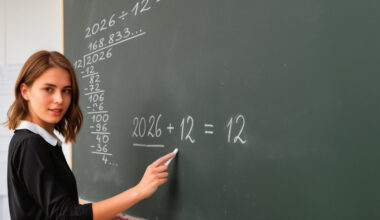 2026 ÷ 12
168.833...
12 2026
-12
82
-72
106
-96
100
-96
40
-36
4...
2026 + 12 = 12